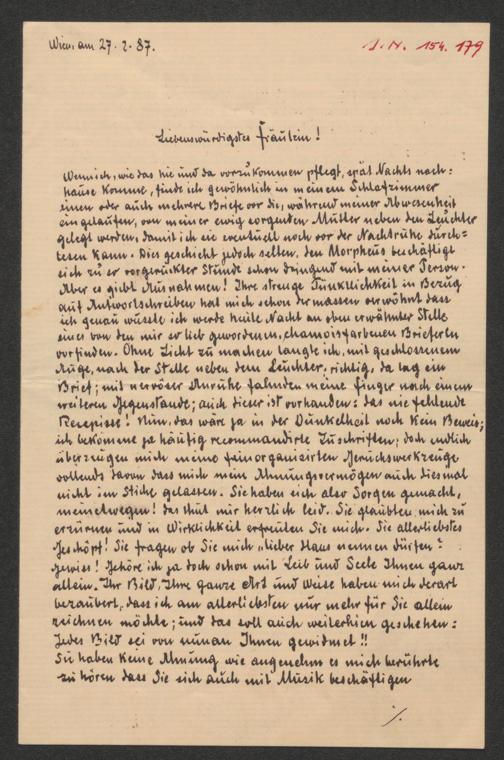 Wien, am 27. 2. 87.
J. N. 154. 179
Liebenswürdigstes Fräulein!
Wenn ich, wie das hie und da vorzukommen pflegt, spät Nachts nach=
hause komme, finde ich gewöhnlich in meinem Schlafzimmer
einen oder auch mehrere Briefe vor die, während meiner Abwesenheit
eingelaufen, von meiner ewig sorgenden Mutter neben den Leuchter
gelegt werden, damit ich sie eventuell noch vor der Nachtruhe durch=
lesen kann. Dies geschieht jedoch selten, denn Morpheus beschäftigt
sich zu so vorgerückter Stunde schon dringend mit meiner Person.
Aber es giebt Ausnahmen! Ihre strenge Pünklichkeit in Bezug
auf Antwortschreiben hat mich schon dermassen verwöhnt dass
ich genau wusste ich werde heute Nacht an oben erwähnter Stelle
eines von den mir so lieb gewordenen, chamoisfarbenen Brieferln
vorfinden. Ohne Licht zu machen langte ich, mit geschlossenem
Auge, nach der Stelle neben dem Leuchter, richtig, da lag ein
Brief; mit nervöser Unruhe fahnden meine Finger nach einem
weiteren Gegenstande; auch dieser ist vorhanden: das nie fehlende
Recepisse! Nun, das wäre ja in der Dunkelheit noch kein Beweis;
ich bekomme ja häufig recommandirte Zuschriften; doch endlich
überzeugen mich meine feinorganisirten Geruchswerkzeuge
vollends davon dass mich mein Ahnungsvermögen auch diesmal
nicht im Stiche gelassen. Sie haben sich also Sorgen gemacht,
meinetwegen! das thut mir herzlich leid. Sie glaubten mich zu
erzürnen und in Wirklichkeit erfreuten Sie mich. Sie allerliebstes
Geschöpf! Sie fragen ob Sie mich „lieber Hans nennen dürfen?
Gewiss! Gehöre ich ja doch schon mit Leib und Seele Ihnen ganz
allein. Ihr Bild, Ihre ganze Art und Weise haben mich derart
bezaubert, dass ich am allerliebsten nur mehr für Sie allein
zeichnen möchte; und das soll auch weiterhin geschehen:
Jedes Bild sei von nun an Ihnen gewidmet!!
Sie haben keine Ahnung wie angenehm es mich berührte
zu hören dass Sie sich auch mit Musik beschäftigen
./.